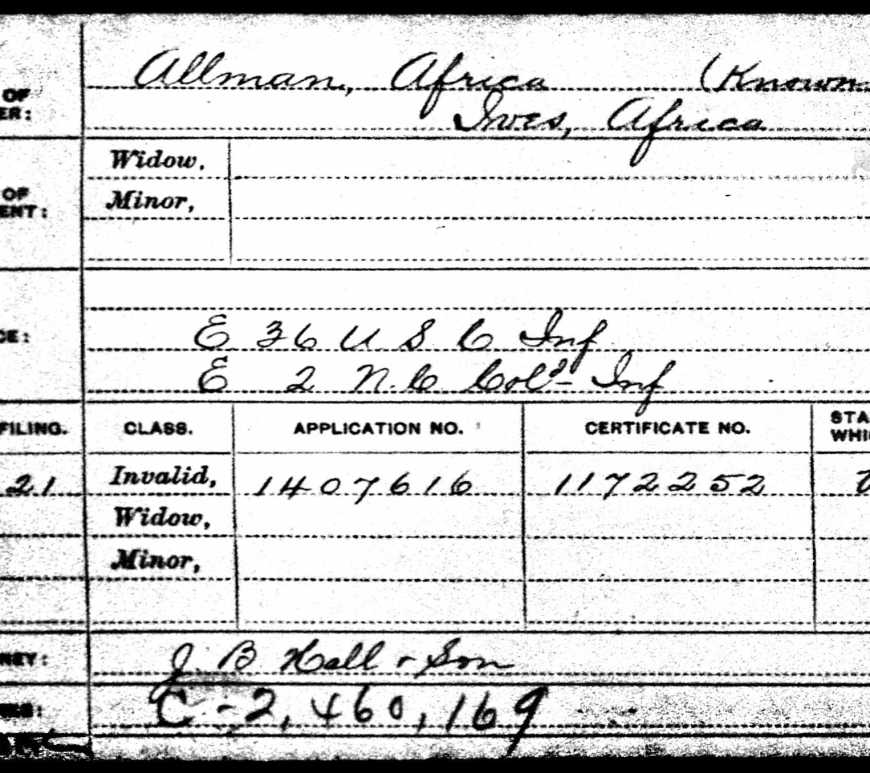 OF Allman, Africa (Known
ER: Ives, Africa
Widow,
OF Minor,
ENT:
CE: E 36 U S C Inf
E 2 N C Col^d Inf
FILING. CLASS. APPLICATION NO. CERTIFICATE NO. STA
WHI
21 Invalid, 1407616 1172252
Widow,
Minor,
NEY: J. B Hall & Son
C-2,460,169